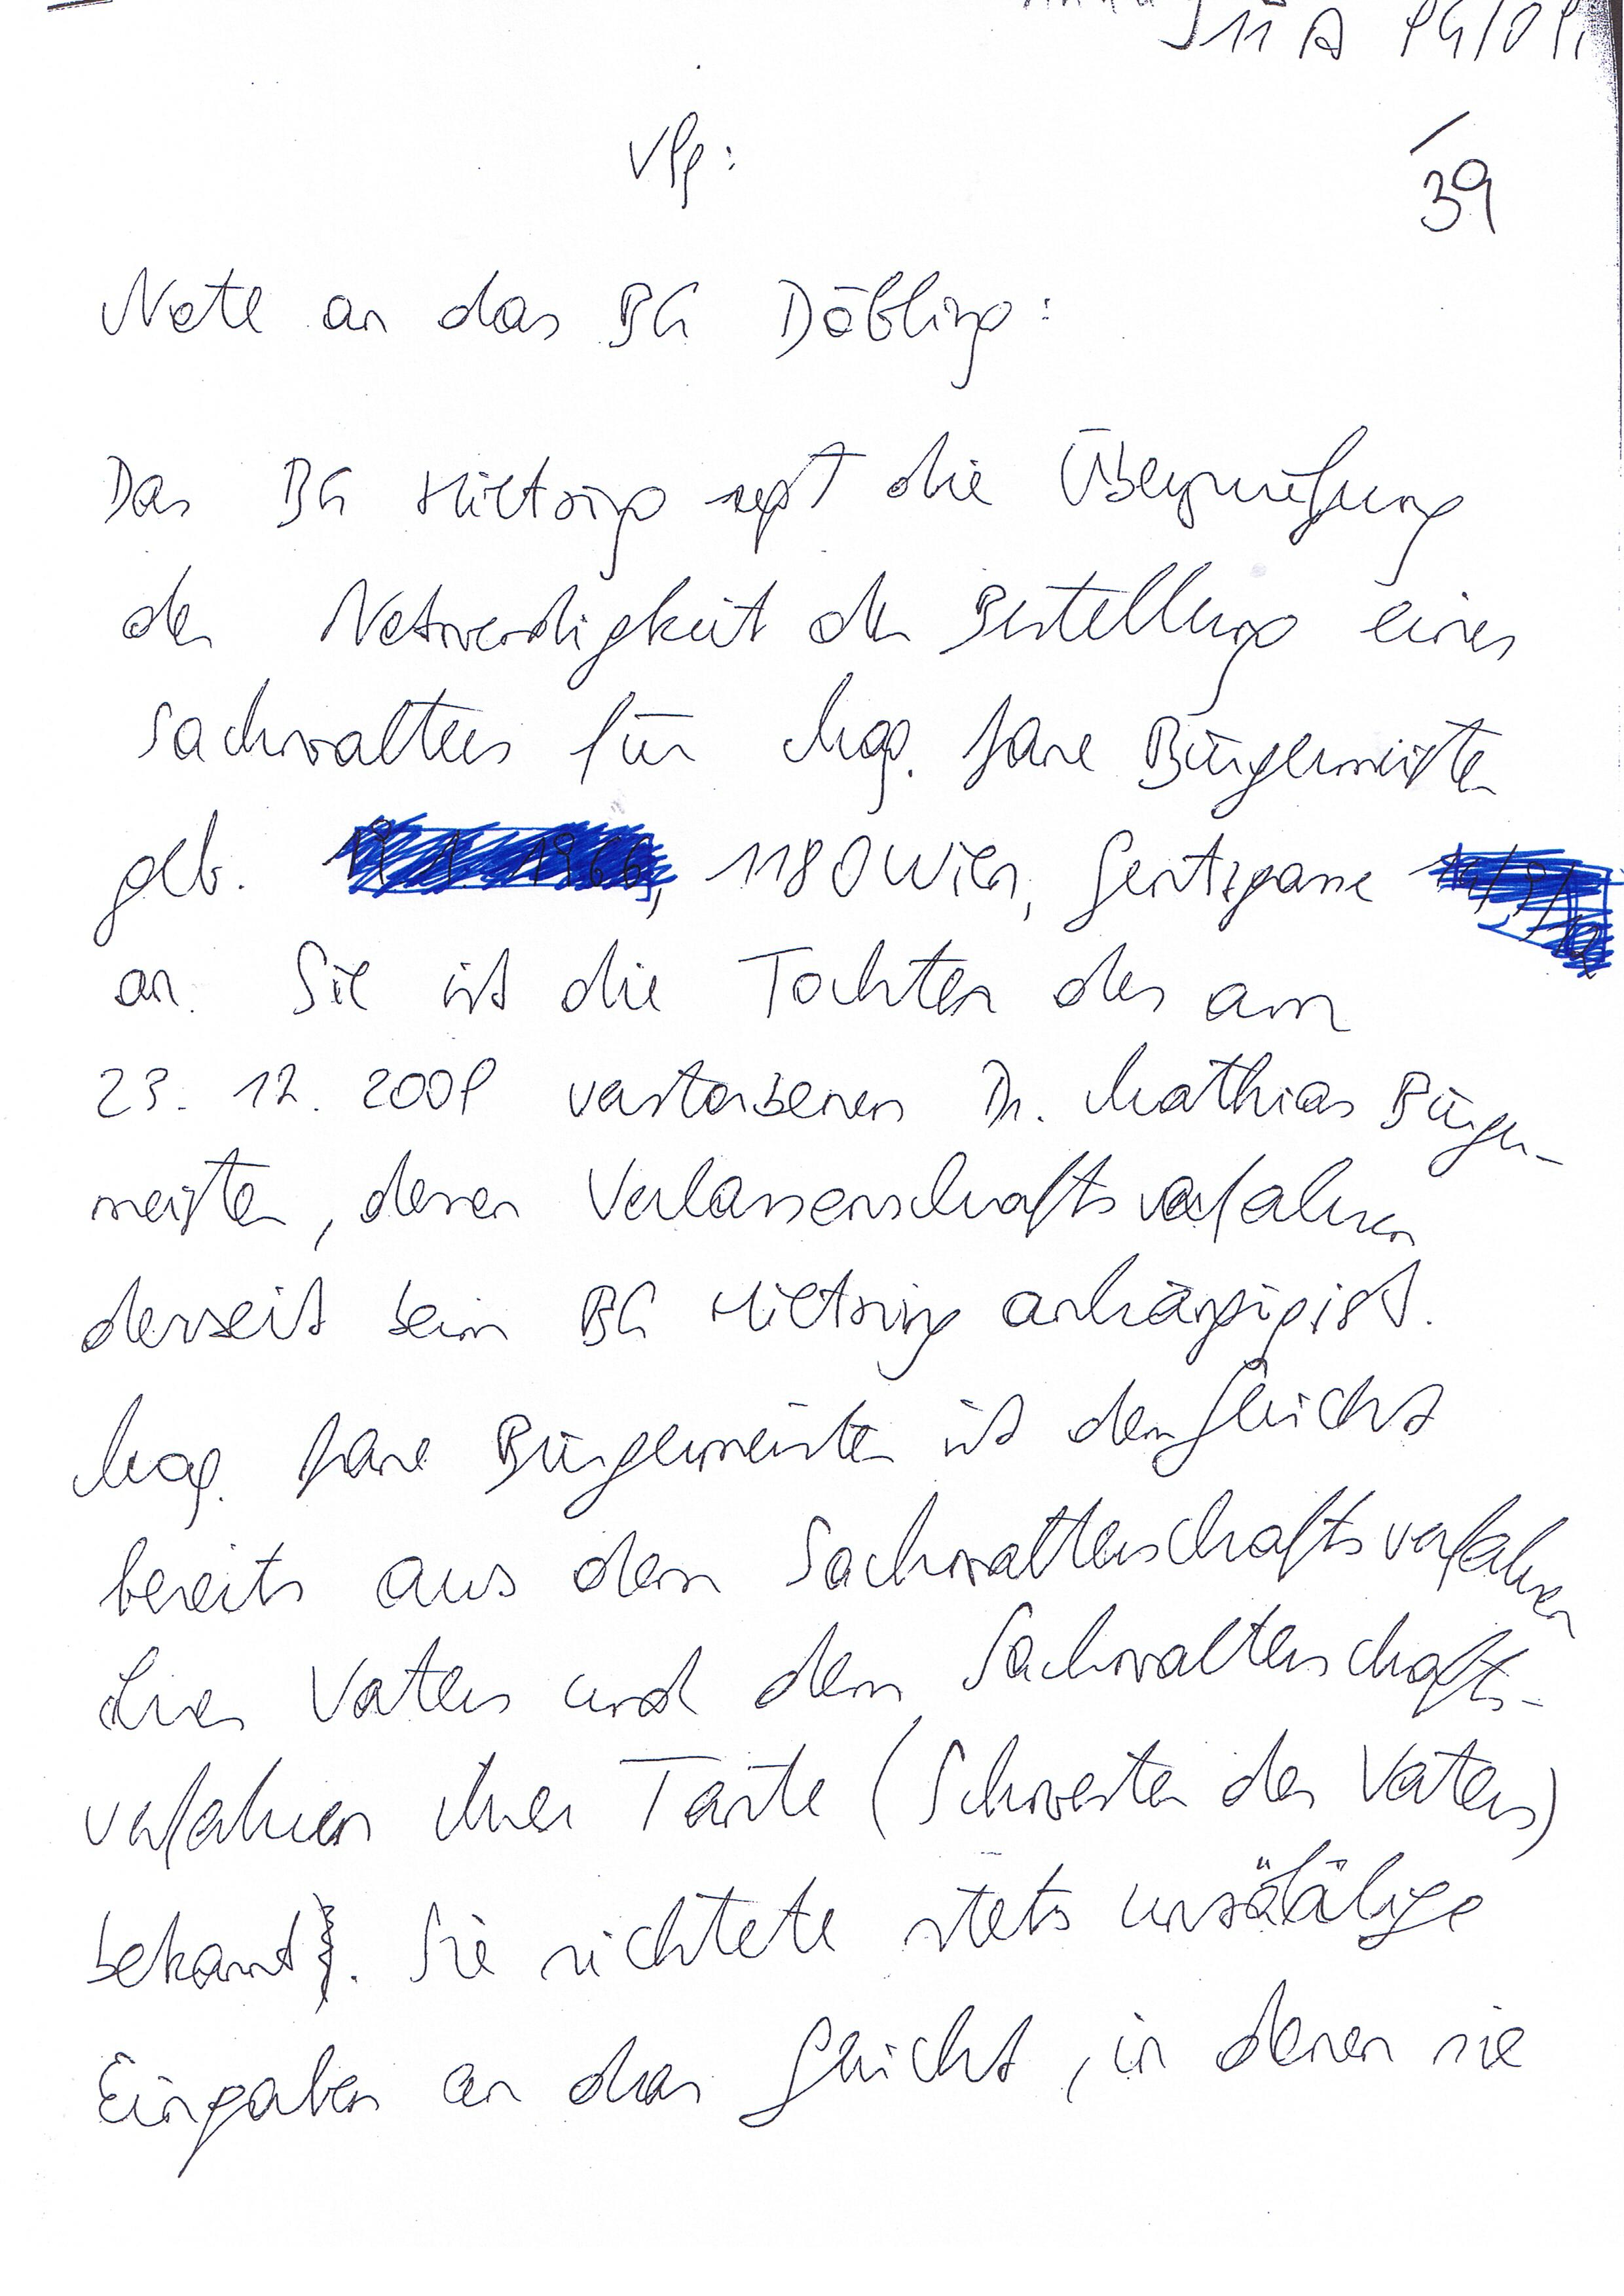 11 A
Vfg:
39
Note an das BG Döbling:
Das BG Hietzing regt die Überprüfung
der Notwendigkeit der Bestellung eines
Sachwalters für Mag. Jane Bürgermeister
geb. 1180 Wien, Gentzgasse
an. Sie ist die Tochter des am
23. 12. verstorbenen Dr. Mathias Bürger-
meister, dessen Verlassenschaftsverfahren
derzeit beim BG Hietzing anhängig ist.
Mag. Jane Bürgermeister ist dem Gericht
bereits aus dem Sachwalterschaftsverfahren
ihres Vaters und dem Sachwalterschafts-
verfahren ihrer Tante (Schwester des Vaters)
bekannt. Sie richtete stets unzählige
Eingaben an das Gericht, in denen sie